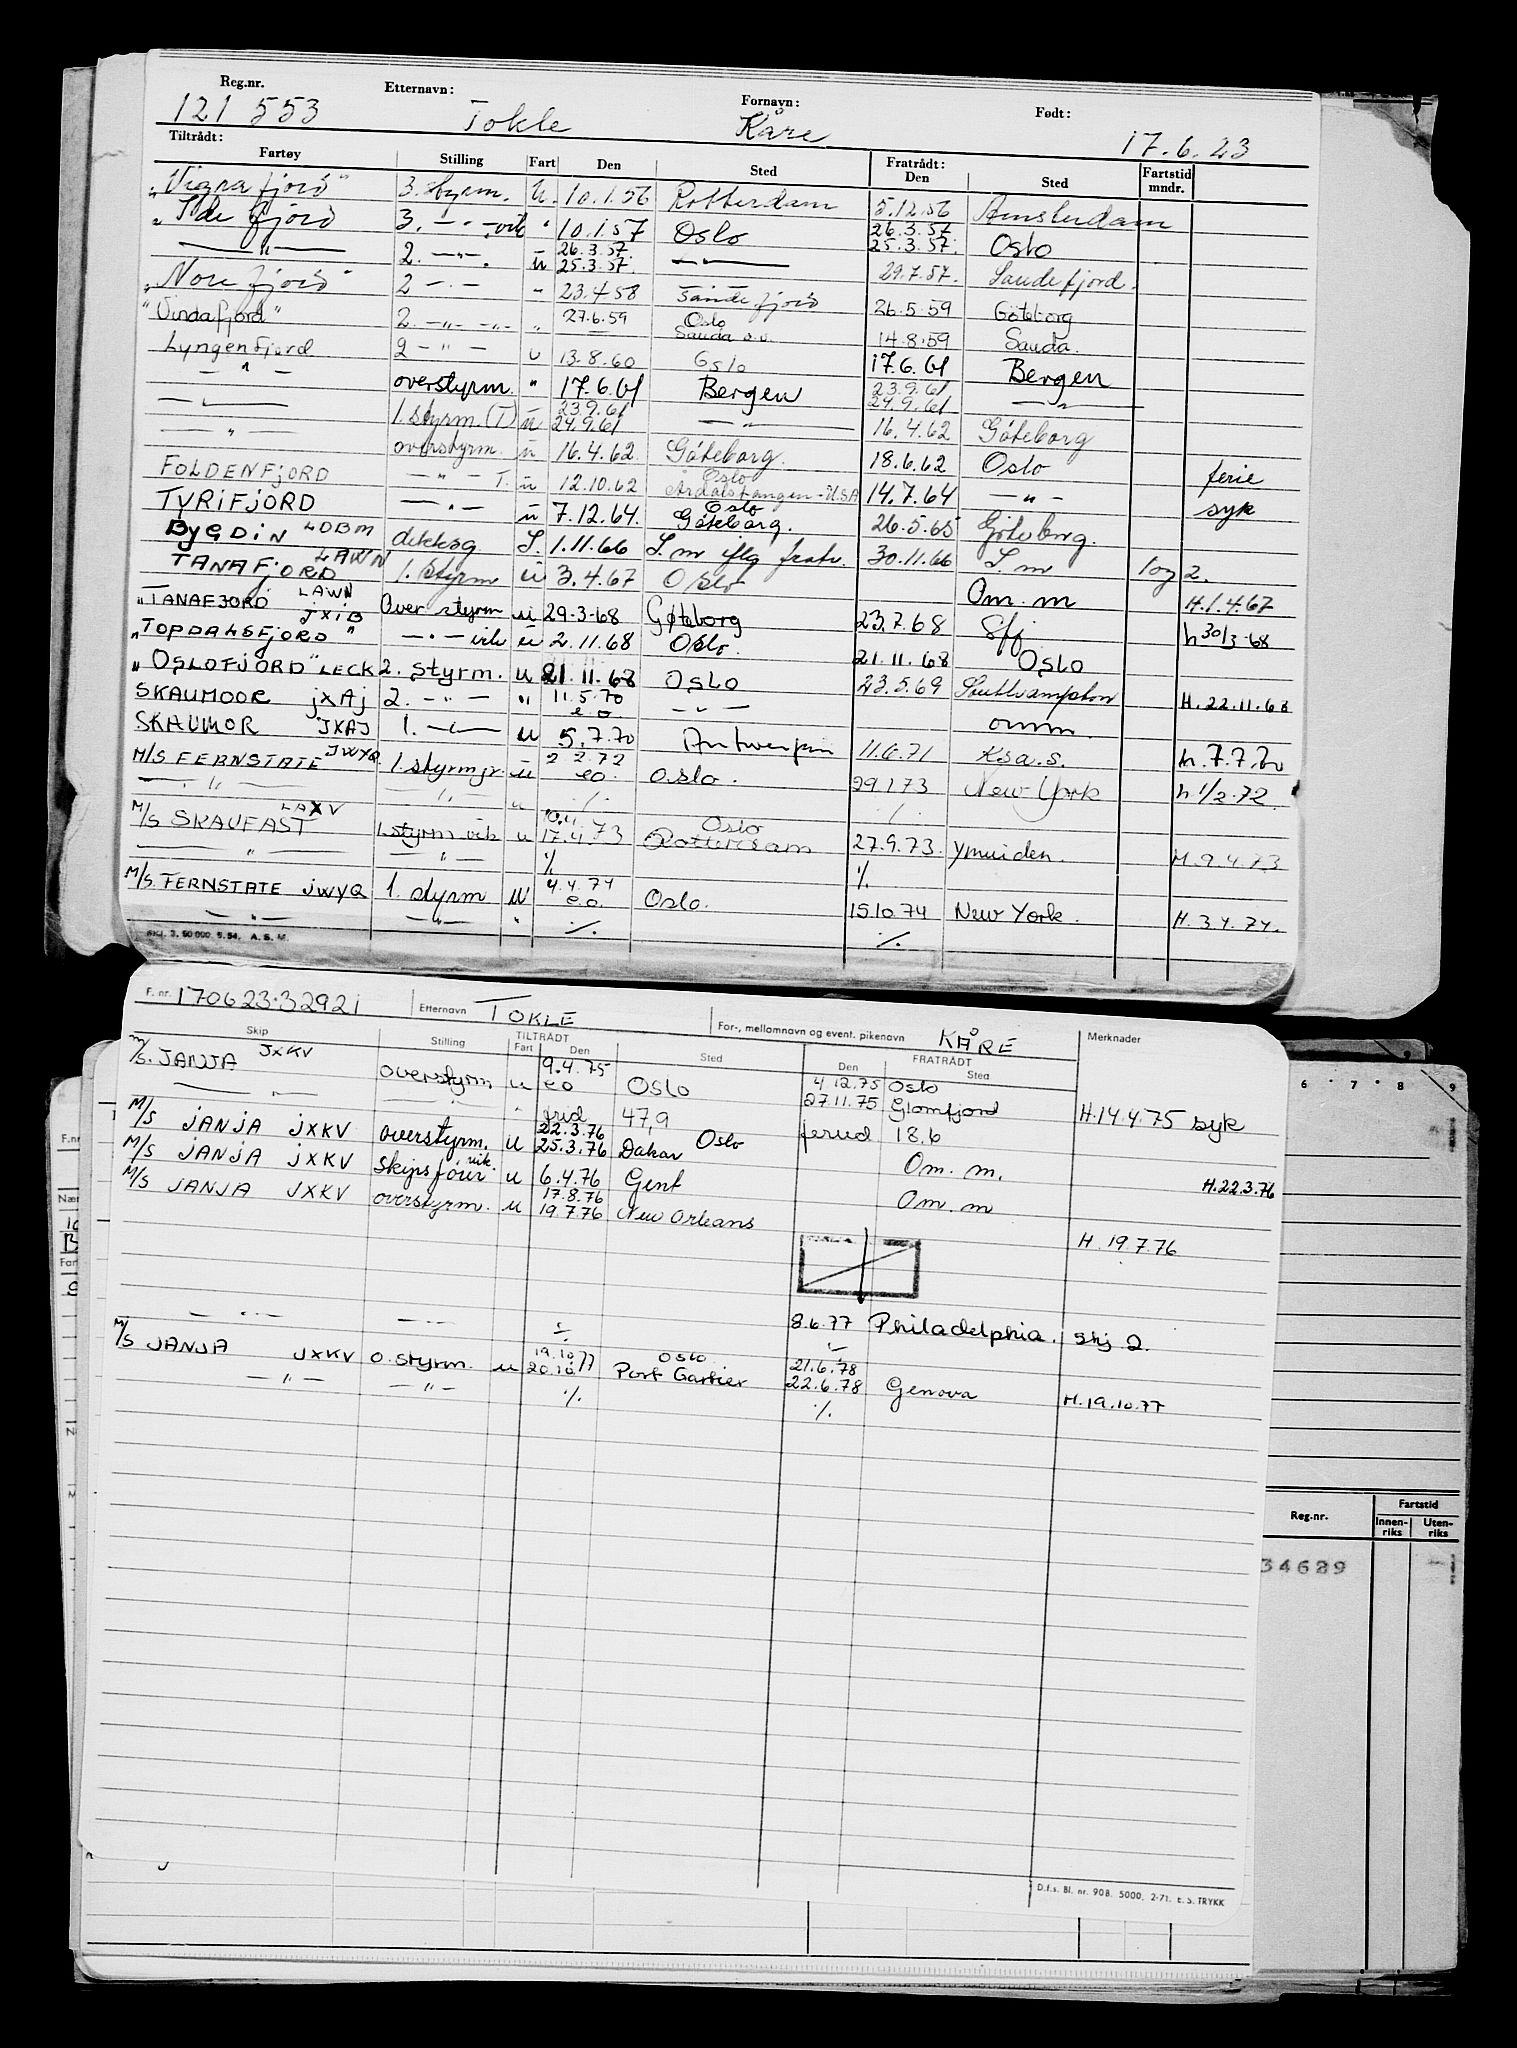 Reg.nr. Etternavn: Fornavn: Født:
121 553 Tokle Kåre 17.6.23
Tiltrådt: Fratrådt:
Fartøy Stilling Fart Den Sted Den Sted Fartstid mndr.
"Vigrafjord" 3. styrm. U. 10.1.56 Rotterdam 5.12.56 Amsterdam
"Ide fjord 3. — " — vik " 10.1.57 Oslo 26.3.57 25.3.57. Oslo
— " — 2. — " — . u 26.3.57. 25.3.57. — " — 29.7.57. Sandefjord.
"Norefjord" 2 — " — " 23.4.58 Sandefjord 26.5.59 Göteborg
"Vindafjord" 2. — " — " — " 27.6.59 Oslo Sauda o.v. 14.8.59 Sauda.
Lyngenfjord 2 — " — u 13.8.60 Oslo 17.6.61 Bergen
— " — overstyrm. " 17.6.61 Bergen 23.9.61 24.9.61 — " —
— " — 1. styrm. (T) u 23.9.61 24.9.61 — " — 16.4.62 Göteborg
— " — overstyrm. u 16.4.62. Göteborg. 18.6.62 Oslo ferie
FOLDENFJORD — " — T. u 12.10.62 Oslo Årdalstangen - USA 14.7.64 — " — syk
TYRIFJORD — " — u 7.12.64. Oslo Göteborg. 26.5.65 Göteborg.
BYGDIN LDBM dekksg. I. 1.11.66 I. m iflg fratr. 30.11.66 I. m log 2.
TANAFJORD LAWN 1. styrm u 3.4.67 Oslo Om. m H.1.4.67
"TANAFJORD LAWN Over styrm u 29-3-68 Gøteborg 23.7.68 Sffj h 30/3-68
"TOPDALSFJORD" JXIB — " — vik u 2.11.68 Oslo. 21.11.68 Oslo
"OSLOFJORD" LECK 2. styrm. u 21.11.68 Oslo 23.5.69 Southampton H.22.11.68
SKAUMOOR JXAJ 2. — " — " 11.5.70 e.o. — " — omm.
SKAUMOR JXAJ 1. — " — u 5.7.70 Antwerpen 11.6.71 Ks a.s. h.7.7.70
M/S FERNSTATE JWYQ 1. styrm jr. u 2.2.72 eo. Oslo. 29.1.73 New York h 1/2.72.
— " — — " — u ./. /.
M/S SKAUFAST LAXV 1. styrm vik u 17.4.73 Oslo Rotterdam 27.9.73. Ymuiden. H.9.4.73
— " — — " — ./. ./.
M/S. FERNSTATE JWYQ 1. styrm u 4.4.74 e.o. Oslo. 15.10.74 New York. H.3.4.74.
— " — — " — " ./. ./.
Bkl. 3. 50 000. 5. 54. A. S. M.
F. nr. 170623.32921 Etternavn TOKLE For-, mellomnavn og event. pikenavn KÅRE Merknader
TILTRÅDT FRATRÅDT
Skip Stilling Fart Den Sted Den Sted
M/S. JANJA JXKV overstyrm u 9.4.75 eo Oslo 4.12.75 27.11.75 Oslo Glomfjord H.14.4.75 syk
— " — — " — " 47,9 ferud 18,6
M/S JANJA JXKV overstyrm. u 22.3.76 25.3.76 Dakar Oslo Om. m. H.22.3.76
M/S JANJA JXKV Skipsfører vik. u 6.4.76 Gent Om. m
M/S JANJA JXKV overstyrm. u 17.8.76 19.7.76 New Orleans H. 19.7.76
— " — — " — ./. 8.6.77 Philadelphia. Skj 2.
M/S JANJA JXKV O. styrm. u 19.10.77 20.10.77 Oslo Port Cartier 21.6.78 22.6.78 Genova H.19.10.77
— " — — " — ./. ./.
D.f.s. Bl. nr. 90B. 5000. 2-71. E. S. TRYKK
6 7 8 9
F.nr
Reg.nr. Fartstid
Innen-riks Uten-riks
34629